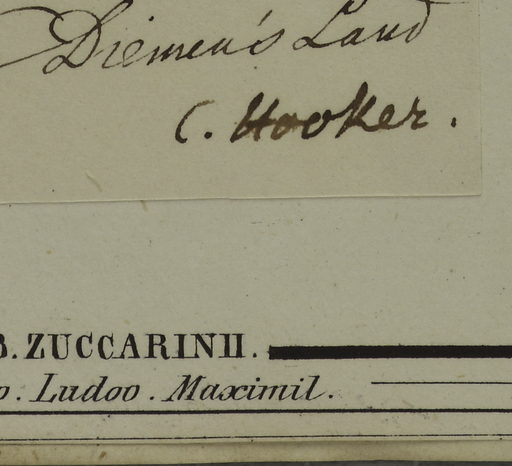 Diemen's Land
C. Hooker.
B. ZUCCARINII.
o. Ludov. Maximil.